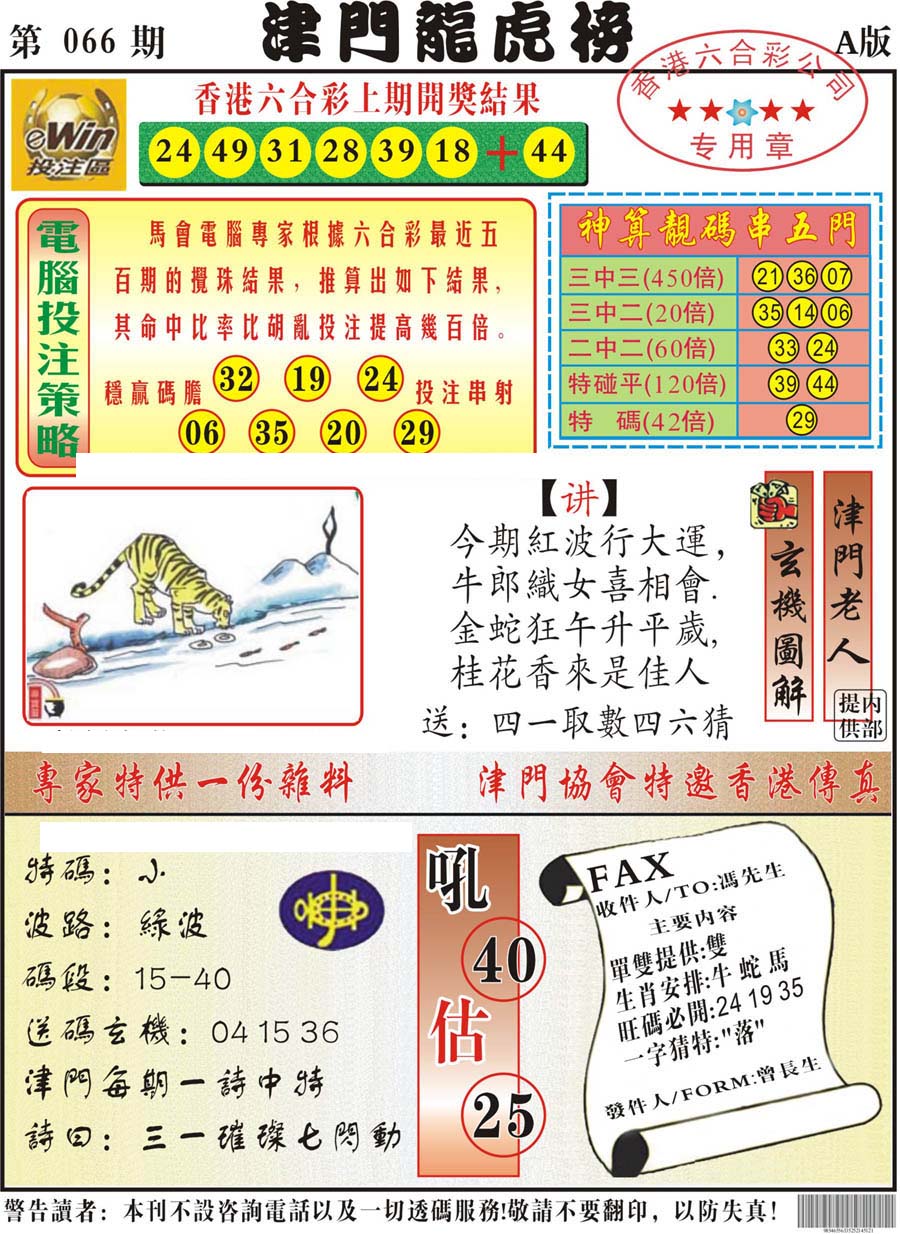 第 066 期
津門龍虎榜
A版
香港六合彩公司
专用章
eWin
投注區
香港六合彩上期開獎結果
24 49 31 28 39 18 + 44
電腦投注策略
馬會電腦專家根據六合彩最近五
百期的攪珠結果，推算出如下結果，
其命中比率比胡亂投注提高幾百倍。
穩贏碼膽 32 19 24 投注串射
06 35 20 29
神算靚碼串五門
三中三(450倍) 21 36 07
三中二(20倍) 35 14 06
二中二(60倍) 33 24
特碰平(120倍) 39 44
特 碼(42倍) 29
【讲】
今期紅波行大運，
牛郎織女喜相會.
金蛇狂午升平歲,
桂花香來是佳人
送：四一取數四六猜
玄機圖解
津門老人
内部提供
專家特供一份雜料
津門協會特邀香港傳真
特碼：小
波路：綠波
碼段：15-40
送碼玄機：04 15 36
津門每期一詩中特
詩曰：三一璀璨七閃動
吼
40
估
25
FAX
收件人/TO:馮先生
主要内容
單雙提供:雙
生肖安排:牛 蛇 馬
旺碼必開:24 19 35
一字猜特:"落"
發件人/FORM:曾長生
警告讀者：本刊不設咨詢電話以及一切透碼服務!敬請不要翻印，以防失真!